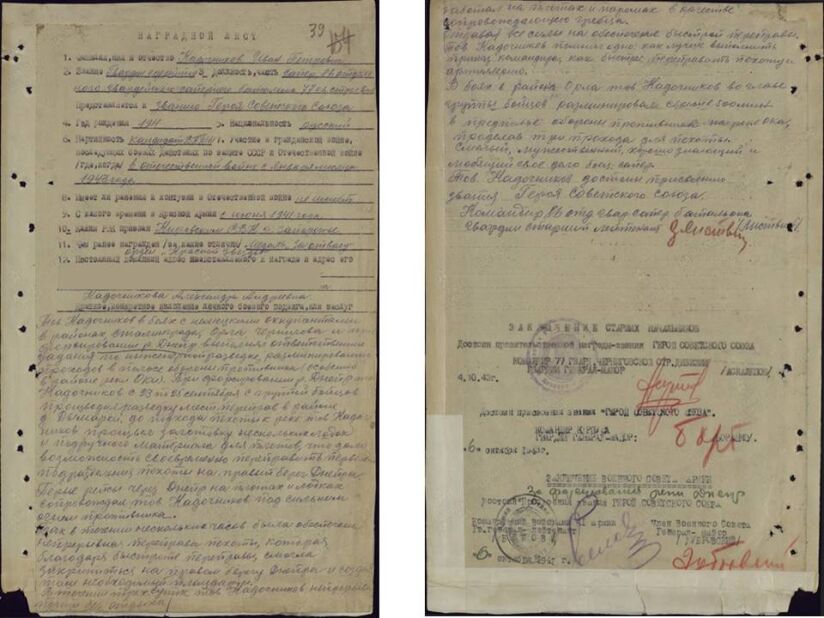 39
НАГРАДНОЙ ЛИСТ
1. Фамилия, имя и отчество Надочников Иван
2. Звание Гвардии 3. должность, часть сапер 86 отдель
ного гвардейского саперного батальона 77
Представляется к званию Героя Советского Союза
4. Год рождения 5. Национальность русский
6. Партийность кандидат 7. Участие в гражданской войне,
последующих боевых действиях по защите СССР и Отечественной войне
/где, когда в отечественной войне с
1943 года
8. Имеет ли ранения и контузии в Отечественной войне не имеет
9. С какого времени в Красной Армии с июня 1941 года
10. Каким РВК призван
11. Чем ранее награжден /за какие отличия/ Медаль За отвагу
орден "Красной Звезды"
12. Постоянный домашний адрес представляемого к награде и адрес его
Надочникова Александра Андреевна
Краткое, конкретное изложение личного боевого подвига, или заслуг
Тов Надочников в боях с немецкими оккупантами
в районах Сталинграда, Орла Чернигова и при
форсировании р. Днепр выполнял ответственные
задания по инженерной разведке, разминированию
проходов в полосе обороны противника /особенно
в районе реки Ока/. При форсировании р. Днепр тов
Надочников с 23 по 26 сентября с группой бойцов
производил разведку мест переправ в районе
до подхода пехоты к реке тов Надоч
ников произвел заготовку нескольких лодок
и подручного материала для плотов, что дало
возможность своевременно переправить первые
подразделения пехоты на правый берег Днепра.
Первые рейсы через Днепр на плотах и лодках
сопровождал тов Надочников под сильным
огнем противника.
в течении нескольких часов была обеспечена
непрерывная переправа пехоты, которая
благодаря быстроте переправы смогла
закрепиться на правом берегу Днепра и создать
там необходимый плацдарм.
В течении трех суток тов Надочников непрерывно
почти без отдыха
работал на плотах и паромах в качестве
сопровождающего гребца.
все силы на обеспечение быстрой переправы
тов Надочников помнил одно: как лучше выполнить
приказ командира, как быстрее переправить пехоту и
артиллерию.
В боях в районе Орла тов Надочников во главе
группы бойцов разминировал свыше 300 мин
в предполье обороны противника на реке Ока,
проделав три прохода для пехоты.
Смелый, мужественный, хорошо знающий и
любящий свое дело боец сапер.
Тов Надочников достоин присвоения
звания Героя Советского Союза.
Командир 86 отд гвар сапер батальона
гвардии старший лейтенант
ЗАКЛЮЧЕНИЕ СТАРШИХ НАЧАЛЬНИКОВ
Достоин правительственной награды-звания ГЕРОЙ СОВЕТСКОГО СОЮЗА
КОМАНДИР 77 ГВАРД. ЧЕРНИГОВСКОЙ СТР. ДИВИЗИИ
ГВАРДИИ ГЕНЕРАЛ-МАЙОР /АСКАЛЕПОВ/
4.10.43г.
Достоин присвоения звания "ГЕРОЙ СОВЕТСКОГО СОЮЗА".
КОМАНДИР КОРПУСА
ГВАРДИИ ГЕНЕРАЛ-МАЙОР:
6 октября 1943г.
ЗАКЛЮЧЕНИЕ ВОЕННОГО СОВЕТА АРМИИ
За форсирование реки Днепр
достоин присвоения звания ГЕРОЙ СОВЕТСКОГО СОЮЗА
Командующий войсками армии
Член Военного Совета
Генерал-майор
октября 1943 г.